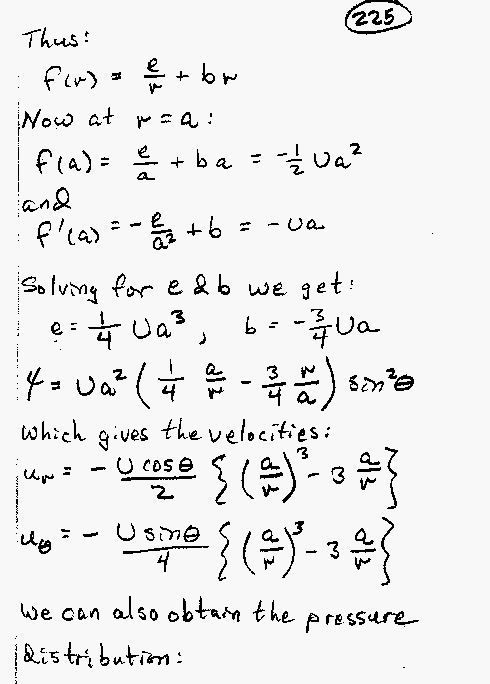 225
Thus:
f(r) = e/r + br
Now at r = a:
f(a) = e/a + ba = -1/2 Ua²
and
f'(a) = - e/a² + b = - Ua
Solving for e & b we get:
e = 1/4 Ua³, b = - 3/4 Ua
ψ = Ua² ( 1/4 a/r - 3/4 r/a ) sin²θ
which gives the velocities:
u_r = - U cosθ/2 { (a/r)³ - 3 a/r }
u_θ = - U sinθ/4 { (a/r)³ - 3 a/r }
We can also obtain the pressure
distribution: